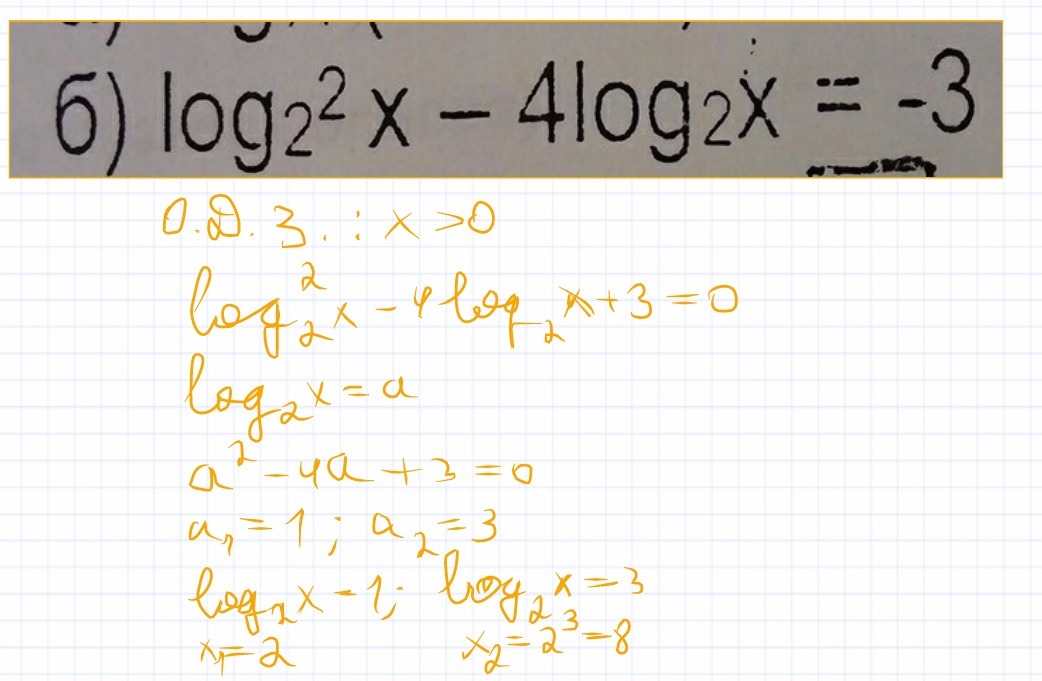 б) log₂² x − 4log₂x = -3
О.Д.З.: x > 0
log₂² x − 4 log₂ x + 3 = 0
log₂ x = a
a² − 4a + 3 = 0
a₁ = 1 ; a₂ = 3
log₂ x − 1; log₂ x = 3
x₁ = 2 x₂ = 2³ = 8